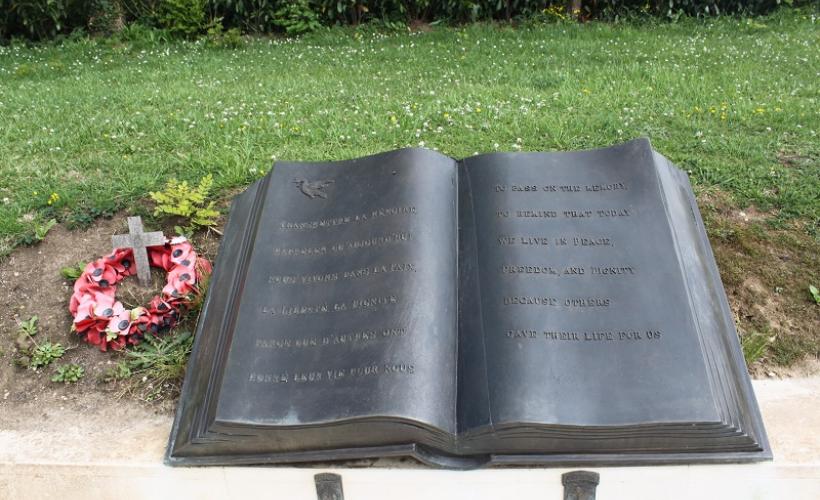 TRANSMETTRE LA MÉMOIRE,
RAPPELER QU'AUJOURD'HUI
NOUS VIVONS DANS LA PAIX,
LA LIBERTÉ, LA DIGNITÉ
PARCE QUE D'AUTRES ONT
DONNÉ LEUR VIE POUR NOUS
TO PASS ON THE MEMORY,
TO REMIND THAT TODAY
WE LIVE IN PEACE,
FREEDOM, AND DIGNITY
BECAUSE OTHERS
GAVE THEIR LIFE FOR US